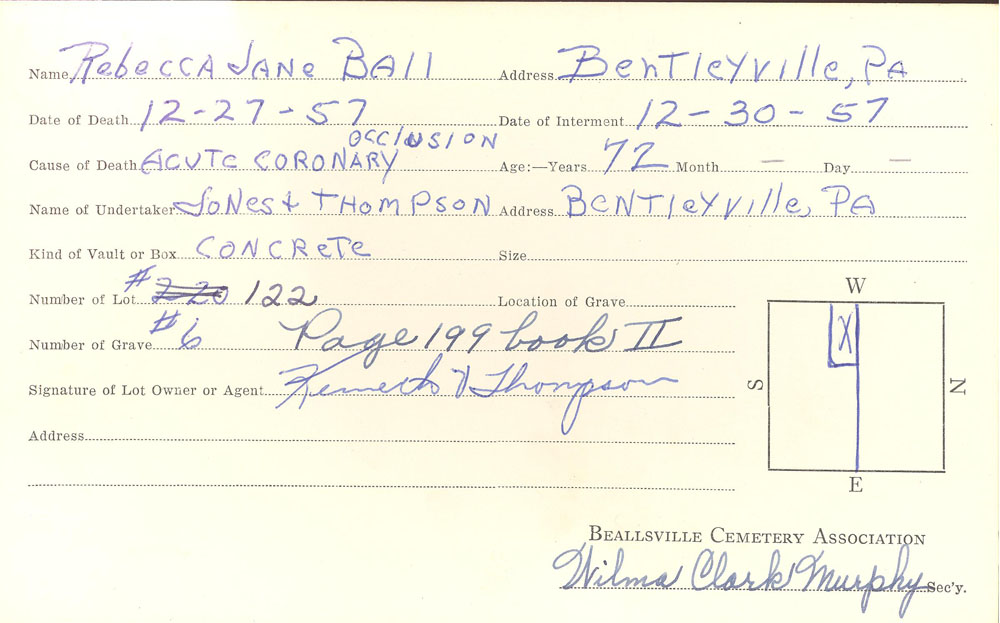 Name Rebecca Jane Ball Address Bentleyville, PA
Date of Death 12-27-57 Date of Interment 12-30-57
Occlusion
Cause of Death Acute Coronary Age:—Years 72 Month – Day –
Name of Undertaker Jones & Thompson Address Bentleyville, PA
Kind of Vault or Box Concrete Size
Number of Lot # 220 122 Location of Grave
Number of Grave #6 Page 199 book II
Signature of Lot Owner or Agent Kenneth D Thompson
Address
W
X
S
N
E
Beallsville Cemetery Association
Wilma Clark Murphy Sec'y.